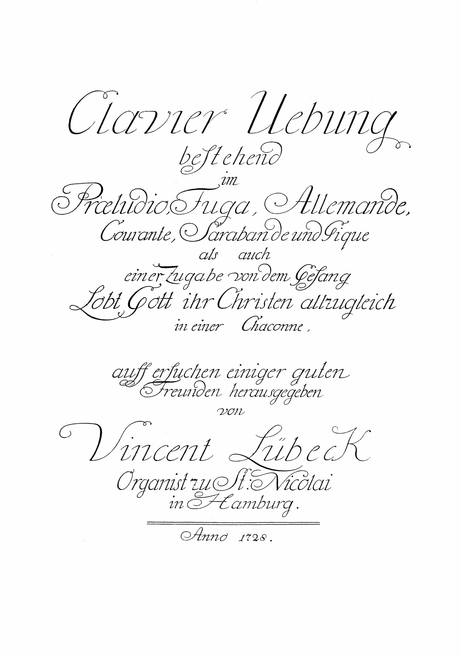 Clavier Uebung
bestehend
im
Præludio, Fuga, Allemande,
Courante, Sarabande und Gique
als auch
einer Zugabe von dem Gesang
Lobt Gott ihr Christen allzugleich
in einer Chaconne,
auff ersuchen einiger guten
Freunden herausgegeben
von
Vincent Lübeck
Organist zu St: Nicolai
in Hamburg.
Anno 1728.